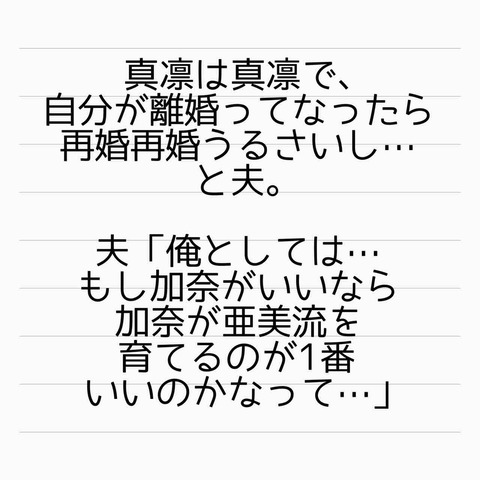 真凛は真凛で、
自分が離婚ってなったら
再婚再婚うるさいし…
と夫。
夫「俺としては…
もし加奈がいいなら
加奈が亜美流を
育てるのが1番
いいのかなって…」